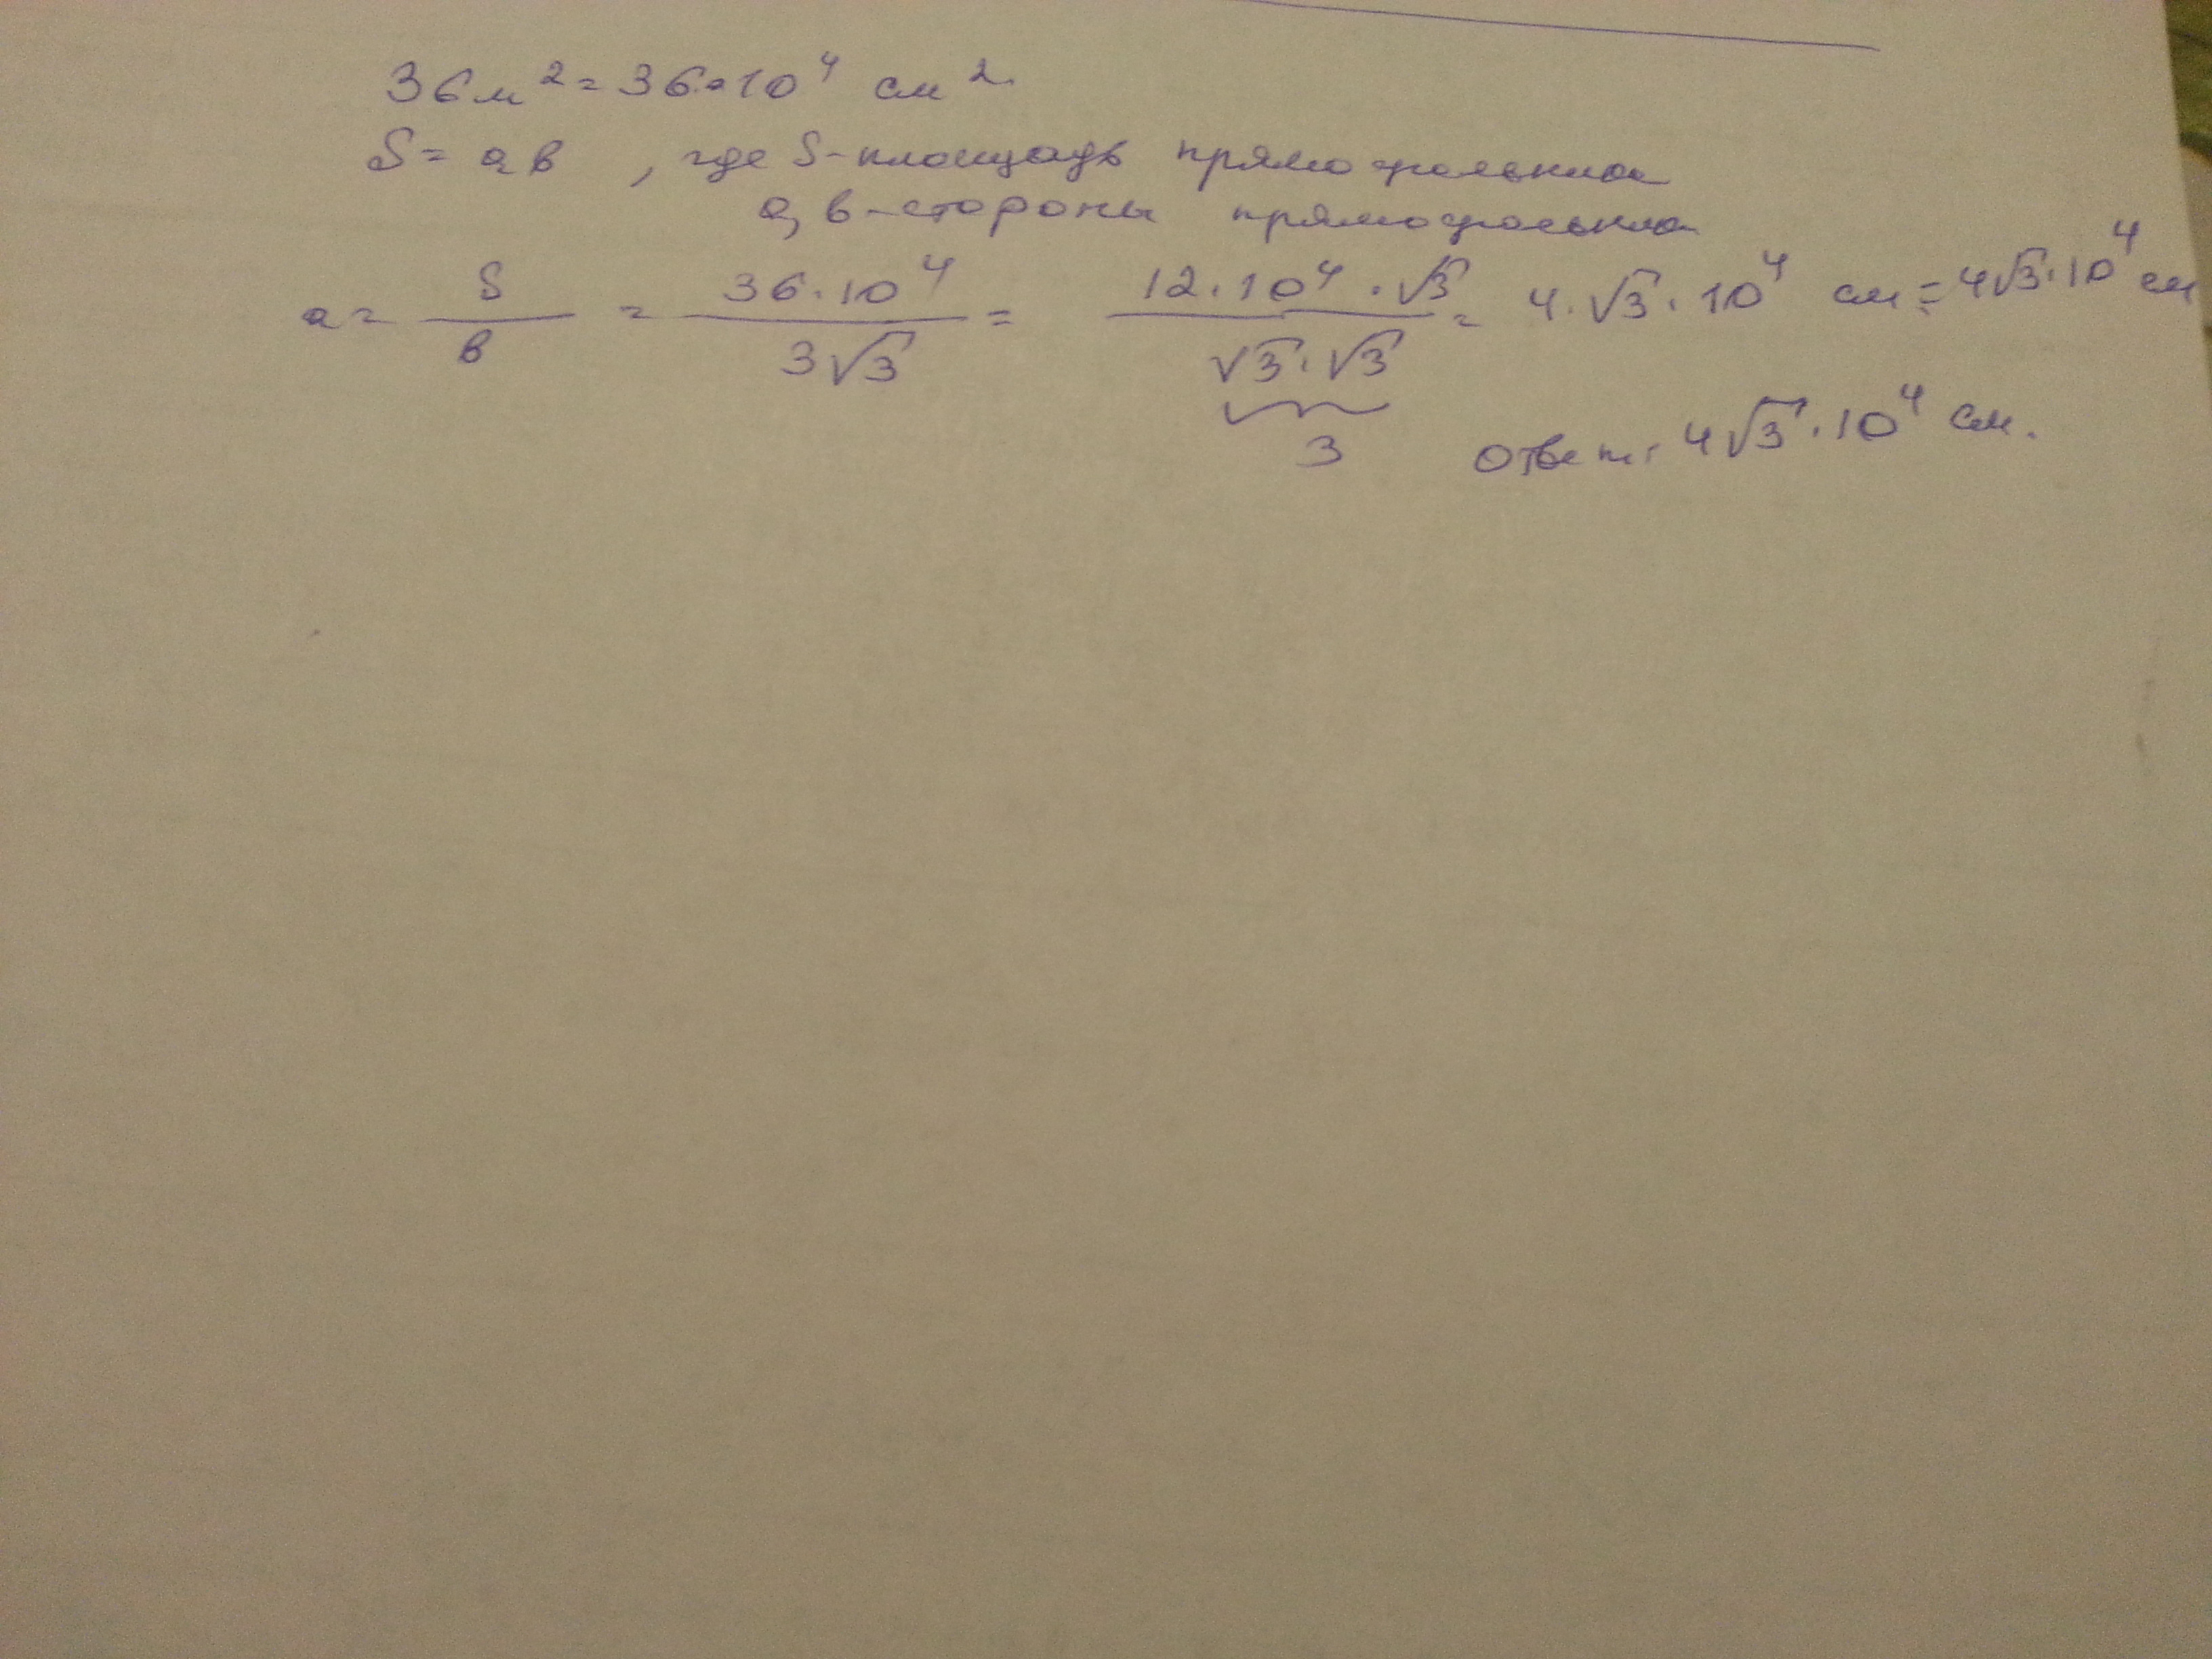 36м² = 36·10⁴ см².
S = ab, где S - площадь прямоугольника
a, b - стороны прямоугольника
a = S/b = 36·10⁴/3√3 = 12·10⁴·√3/√3·√3 = 4·√3·10⁴ см = 4√3·10⁴ см
3
Ответ: 4√3·10⁴ см.